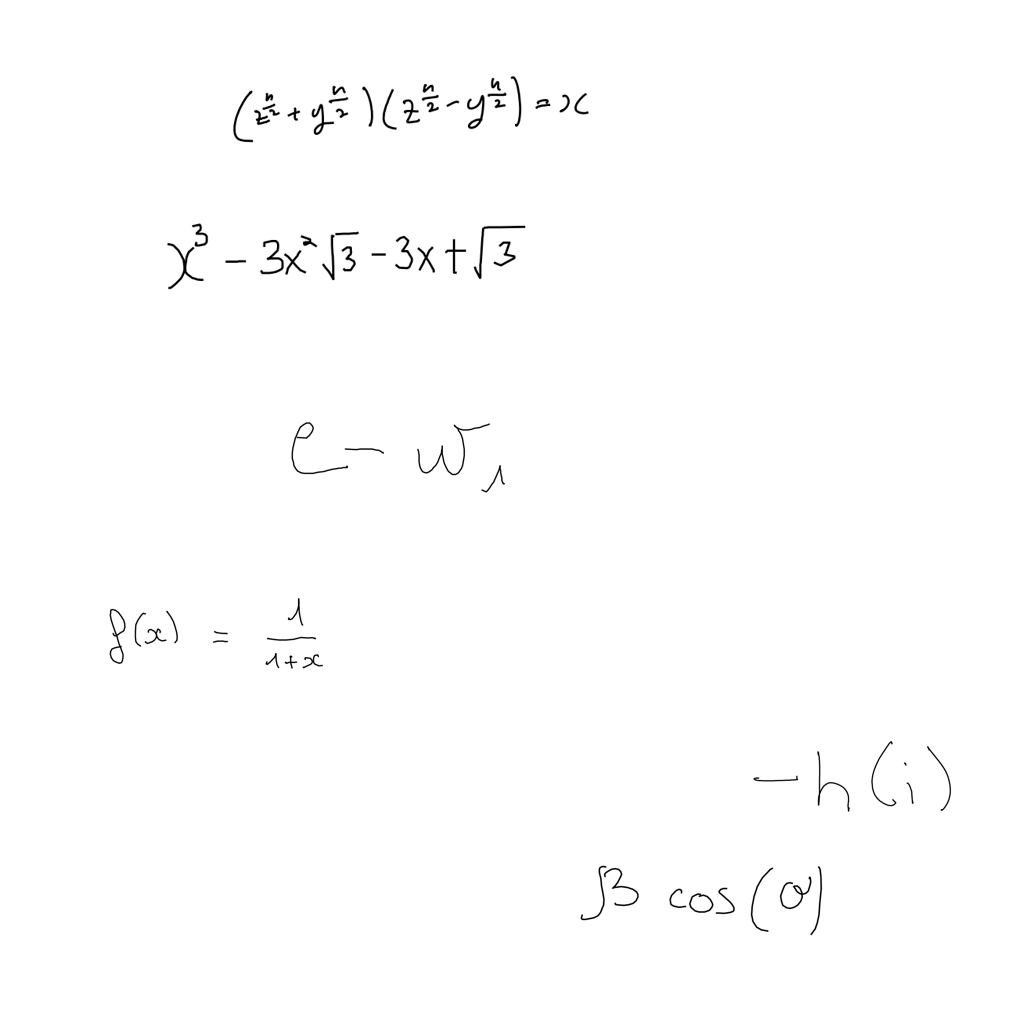 (z^{\frac{n}{2}} + y^{\frac{n}{2}})(z^{\frac{n}{2}} - y^{\frac{n}{2}}) = x
x^3 - 3x^2\sqrt{3} - 3x + \sqrt{3}
e - w_1
f(x) = \frac{1}{1+x}
-h(i)
β cos(σ)